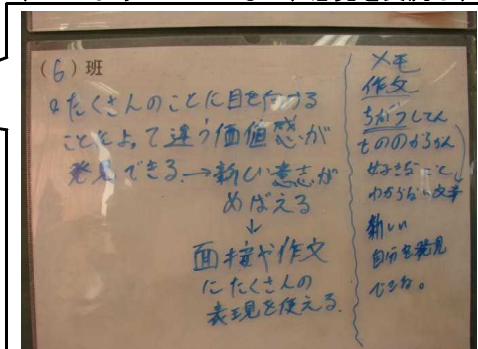 (6)班
たくさんのことに目を向ける
ことによって違う価値感が
発見できる→新しい意志が
めばえる
↓
面接や作文
にたくさんの
表現を使える.
メモ
作文
ちがうしてん
もののかちかん
好きなこと
わからない文字
新しい
自分を発見